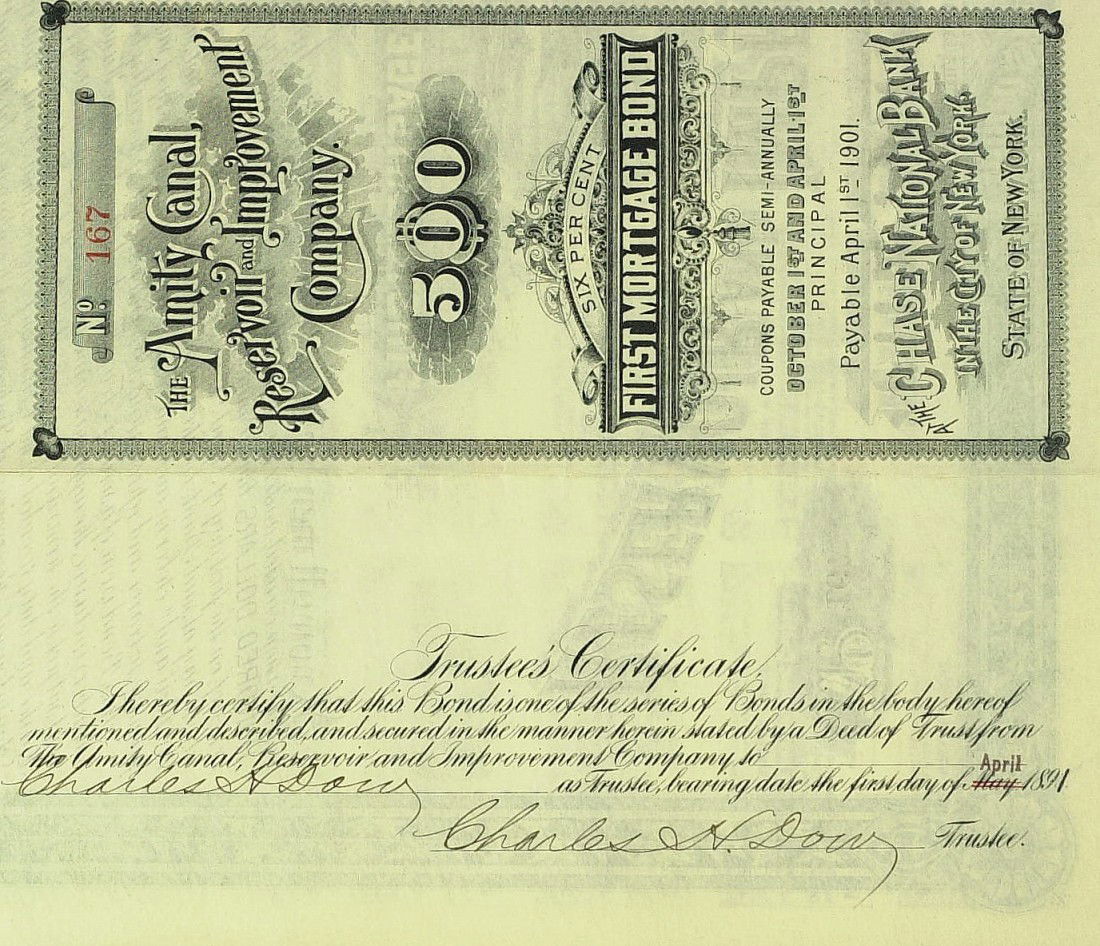 Nº 167
THE Amity Canal,
Reservoir and Improvement
Company.
$500
SIX PER CENT
FIRST MORTGAGE BOND
COUPONS PAYABLE SEMI-ANNUALLY
OCTOBER 1ST AND APRIL 1ST
PRINCIPAL
Payable April 1ST 1901.
AT THE CHASE NATIONAL BANK
IN THE CITY OF NEW YORK,
STATE OF NEW YORK.
Trustee's Certificate.
I hereby certify that this Bond is one of the series of Bonds in the body hereof
mentioned and described, and secured in the manner herein stated by a Deed of Trust from
The Amity Canal, Reservoir and Improvement Company to
Charles H Dow as Trustee, bearing date the first day of May April 1891.
Charles H. Dow Trustee.